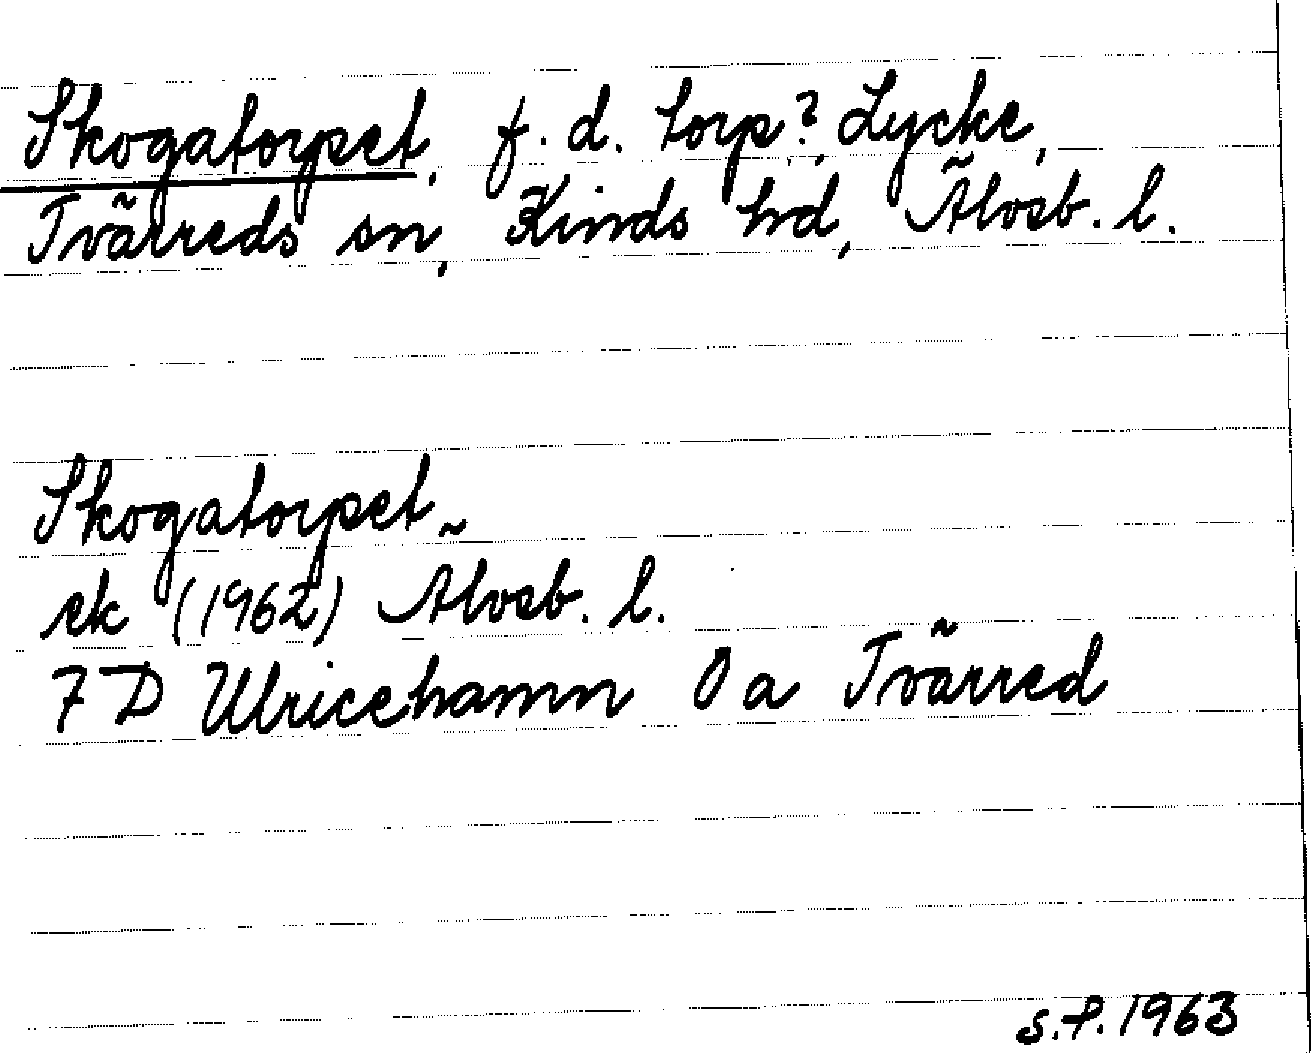 Skogatorpet, f.d. torp?, Lycke,
Tvärreds sn, Kinds hd, Älvsb. l.
Skogatorpet
ek (1962) Älvsb. l.
7 D Ulricehamn 0 a Tvärred
S.F. 1963